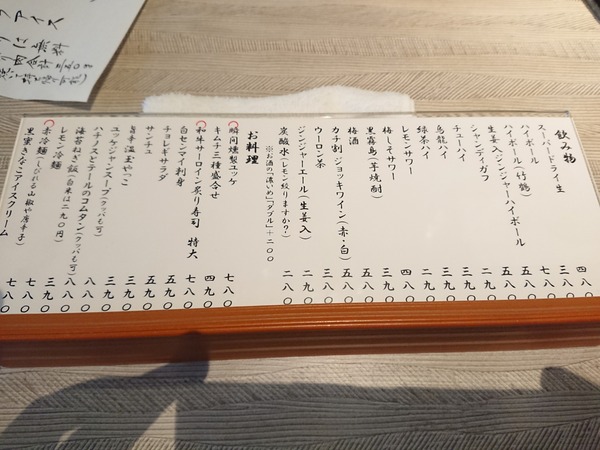 アイス
飲み物
スーパードライ生 四八〇
ハイボール 三八〇
ハイボール(竹鶴) 七八〇
生姜入ジンジャーハイボール 五八〇
シャンディガフ 五八〇
チューハイ 二九〇
烏龍ハイ 三九〇
緑茶ハイ 三九〇
レモンサワー 二九〇
梅しそサワー 四八〇
黒霧島(芋焼酎) 三九〇
梅酒 五八〇
カチ割 ジョッキワイン(赤・白) 五八〇
ウーロン茶 三八〇
ジンジャーエール(生姜入) 二九〇
炭酸水(レモン絞りますか?) 二八〇
※お酒の「濃いめ」「ダブル」+二〇〇
お料理
瞬間燻製ユッケ 七八〇
キムチ三種盛合せ 四九〇
和牛サーロイン炙り寿司 特大 七八〇
白センマイ刺身 五九〇
チョレギサラダ 五九〇
サンチュ 三九〇
旨辛温玉やっこ 三九〇
ユッケジャンスープ(クッパも可) 八八〇
ハチノスとテールのコムタン(クッパも可) 八八〇
海苔ねぎ飯(白米は二九〇円) 三九〇
レモン冷麺 七八〇
赤冷麺(しびれる山椒や唐辛子) 七八〇
黒蜜きなこアイスクリーム